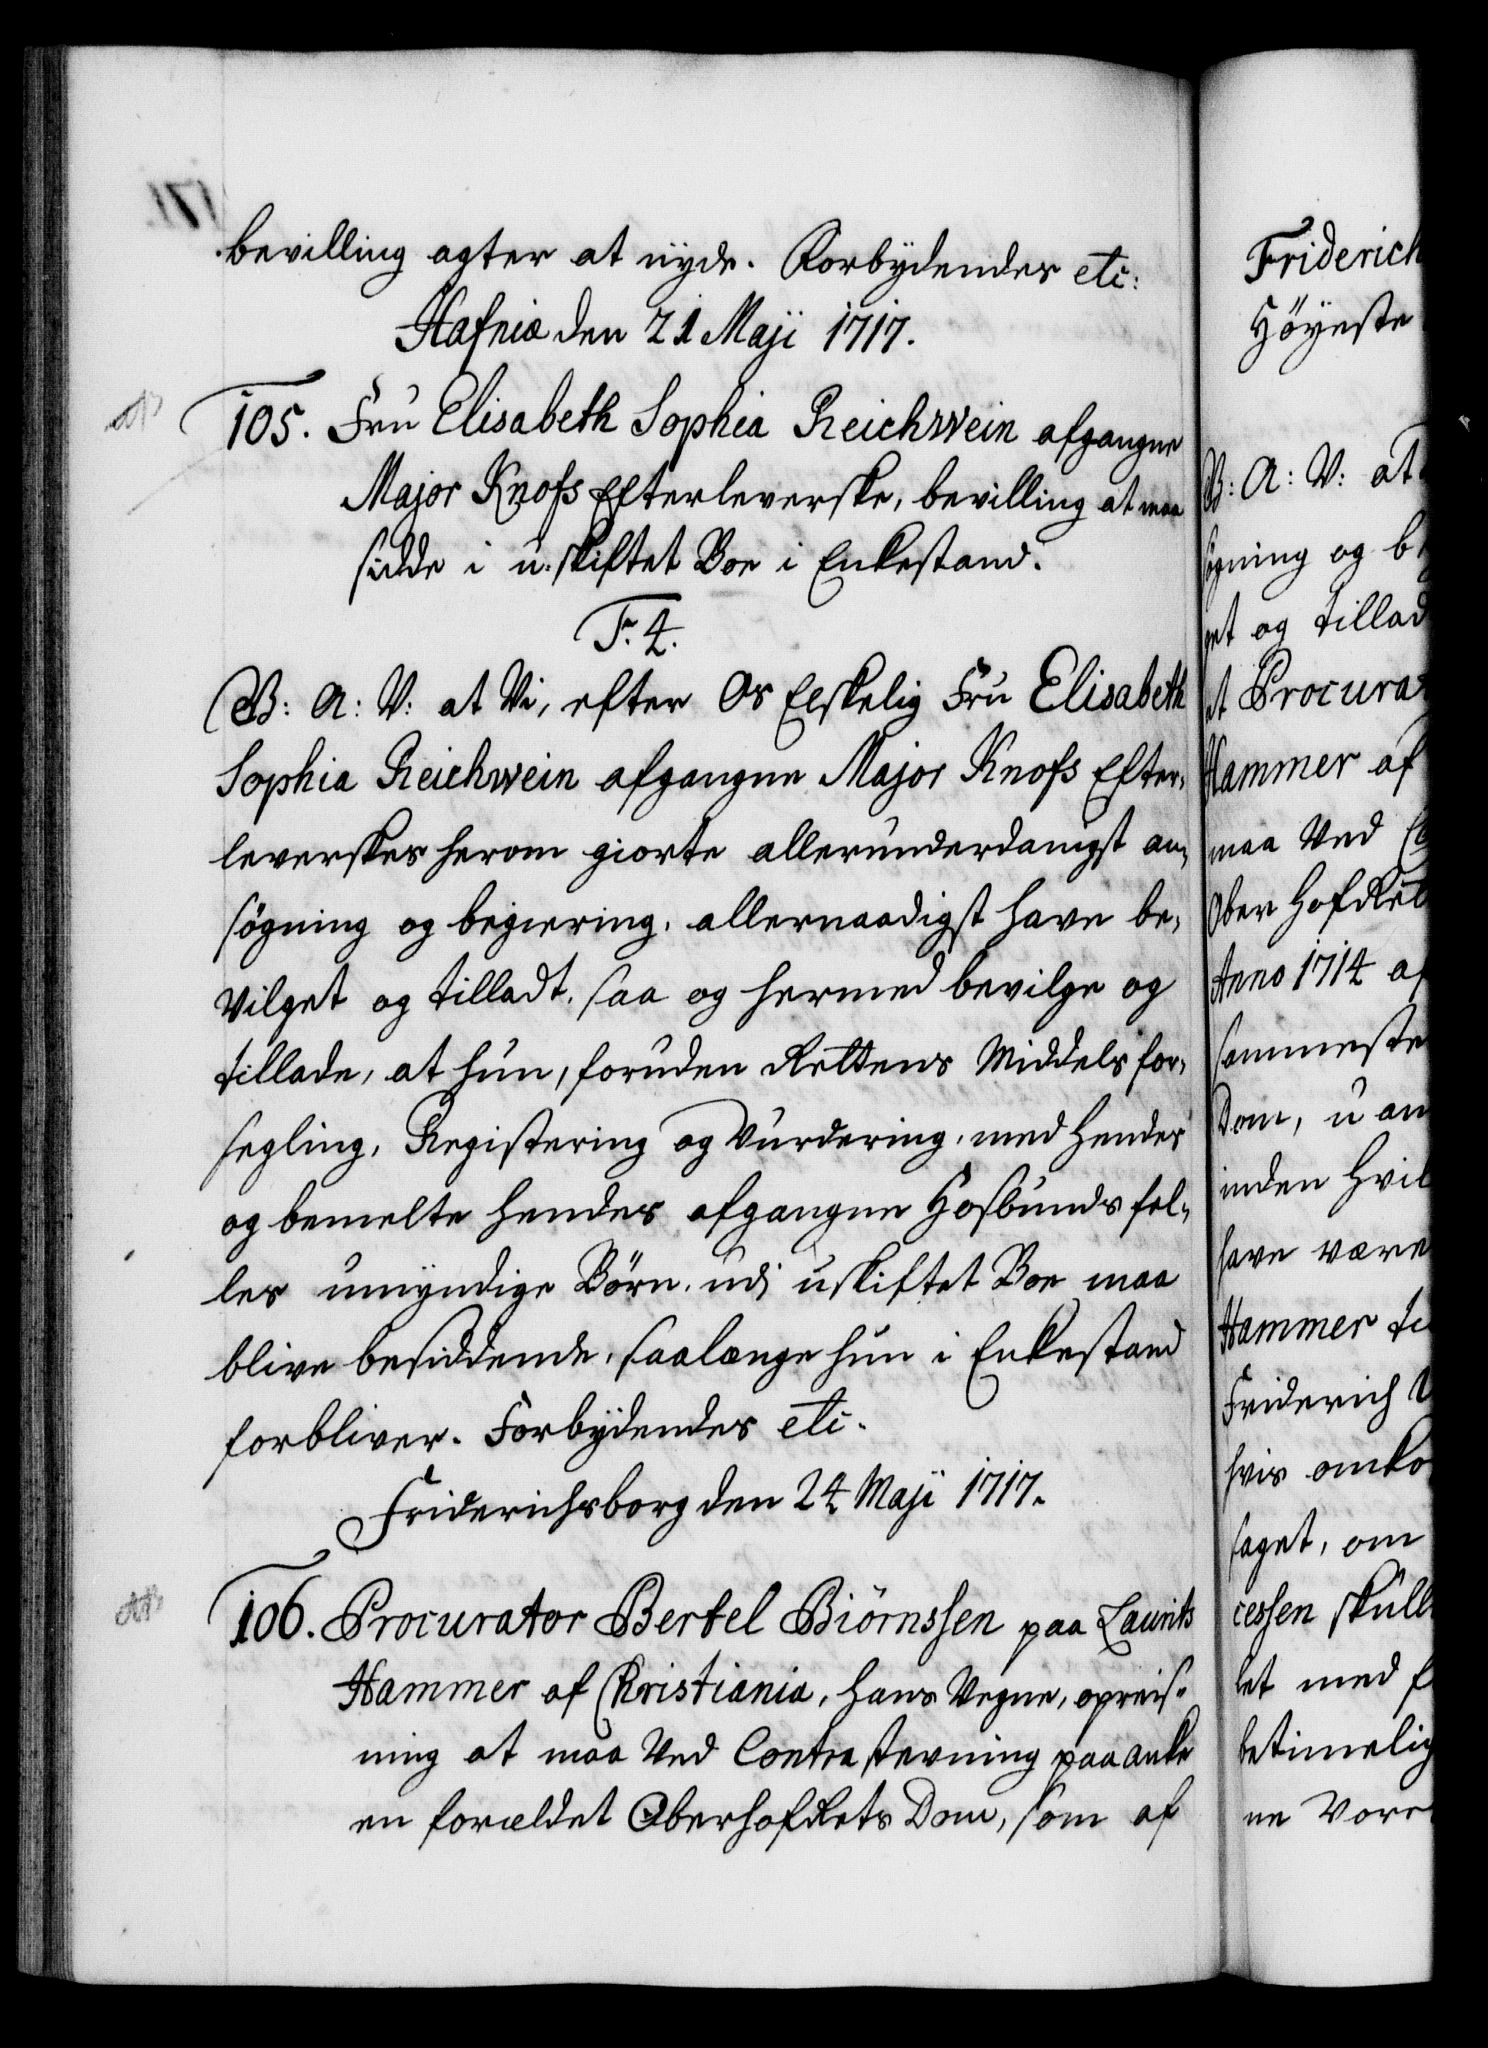 bevilling agter at nyde. Forbydendes etc:
Hafniæ den 21 Maji 1717.
105. Fru Elisabeth Sophia Reichwein afgangne
Major Knofs Efterleverske, bevilling at maa
sidde i u-skiftet Boe i Enkestand.
F. 4.
B: A: V: at Vi, efter Os Elskelig Fru Elisabeth
Sophia Reichwein afgangne Major Knofs Efter-
leverskes herom giorte allerunderdanigst an-
søgning og begiering, allernaadigst have be-
vilget og tilladt, saa og hermed bevilge og
tillade, at hun, foruden Rettens Middels for-
segling, Registering og Vurdering, med hendes
og bemelte hendes afgangne Hosbunds fel-
les umyndige Børn, udj uskiftet Boe maa
blive besiddende, saalænge hun i Enkestand
forbliver. Forbydendes etc.
Friderichsborg den 24 Maji 1717.
106. Procurator Bertel Biörnssen paa Laurits
Hammer af Christiania, hans Vegne, opreis-
ning at maa Ved Contrastevning paaanke
en forældet OberhofRets Dom, som af
Friderich
Höyeste
B: A: V: at
søgning og be
get og tillad
at Procura
Hammer af
maa Ved
Ober HofRet
Anno 1714 af
sammeste
Dom, u an
inden hvil
have være
Hammer ti
Friderich
hvis omko
saget, om
cessen skull
let med f
betimelig
ne Vore